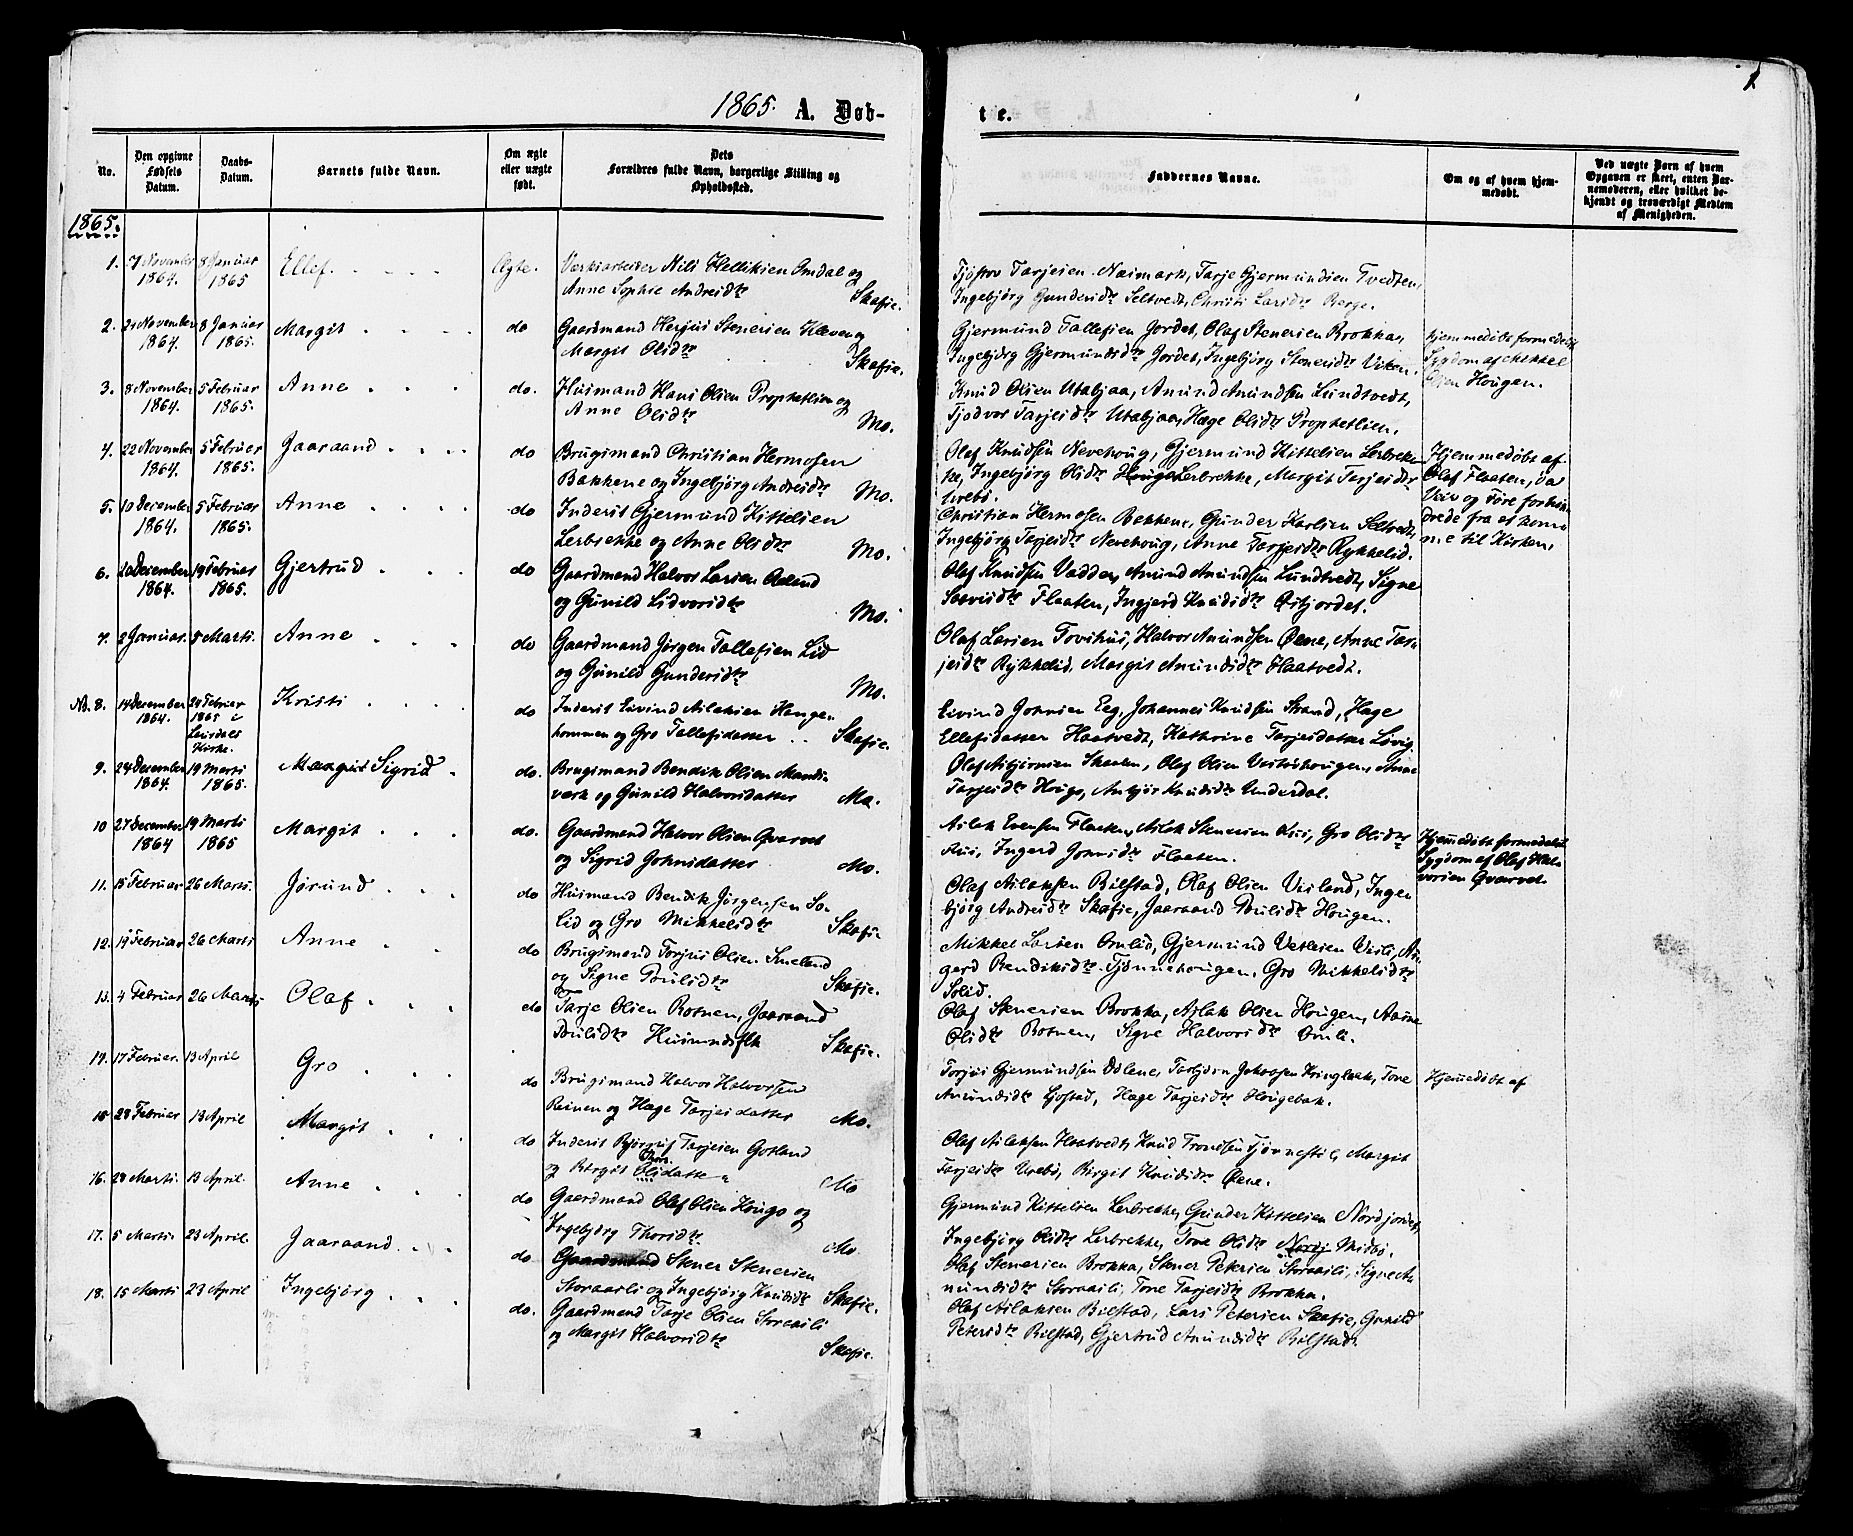 1865. A. Døb-
te.
1
No.
Den opgivne Fødsels Datum.
Daabs-Datum.
Barnets fulde Navn.
Om ægte eller uægte født.
Dets Forældres fulde Navn, borgerlige Stilling og Opholdssted.
Faddernes Navne.
Om og af hvem hjemmedøbt.
Ved uægte Børn af hvem Opgaven er skeet, enten Barnemoderen, eller hvilket bekjendt og troværdigt Medlem af Menigheden.
1865.
1. November 1864. 8 Januar 1865 Ellef. Ægte.
Anne Sophie Andreasdtr Skafse.
Ingebjørg Gundersdtr Seltvedt, Christi Larsdtr Berge.
2. November 1864. 8 Januar 1865. Margit do
Margit Olsdtr Skafse.
Gjermund Tallefsen Jordet, Olaf Stenersen Brokka,
Ingebjørg Gjermundsdtr Jordet, Ingebjørg Stenersdtr Viken.
hjemmedøbt formedelst
Sygdom af Mikkel
Olsen Hougen.
3. 8 November 1864. 5 Februar 1865. Anne do.
Huusmand Hans Olsen Prophetlien og
Anne Olsdtr Mo.
Knud Olsen Utabjaa, Amund Amundsen Lundtvedt,
Tarjeisdtr Utabjaa, Hæge Olsdtr Prophetlien.
4. 22 November 1864. 5 Februar 1865. Jaaraand do
Brugsmand Christian Hermosen
Bakkene og Ingebjørg Andresdtr Mo.
Olaf Knudsen Nevehoug, Gjermund Kittelsen Lerbrek-
ke, Ingebjørg Olsdtr Lerbrekke, Margit Tarjeisdtr
Urebø.
Hjemmedøbt af
Olaf Flaaten, da
Veir og Føre forhin-
drede fra at kom-
me til Kirken.
5. 10 December 1864. 5 Februar 1865. Anne do
Inderst Gjermund Kittelsen
Lerbrekke og Anne Olsdtr Mo.
Christian Hermosen Bakkene, Gunder Seltvedt,
Ingebjørg Tarjeisdtr Nevehoug, Anne Tarjeisdtr Rykkelid.
6. 20 December 1864. 19 Februar 1865. Gjertrud do
Gaardmand Halvor Larsen
og Gunild Lidvorsdtr Mo.
Olaf Knudsen Vadder, Amund Amundsen Lundtvedt, Signe
Flaaten, Ingjerd Knudsdtr
7. 2 Januar. 5 Marts. Anne do
Gaardmand Jørgen Tallefsen Lid
og Gunild Gundersdtr Mo.
Olaf Larsen Halvor Amundsen Øene, Anne Tar-
jeisdtr Rykkelid, Margit Amundsdtr Haatvedt.
NB. 8. 14 December 1864. Februar 1865 i Laurdals Kirke. Kristi do
Inderst Eivind Aslaksen Hange-
hommen og Gro Tallefsdatter Skafse.
Eivind Johnsen Eeg, Johannes Knudsen Strand, Hæge
Ellefsdatter Haatvedt, Kathrine Tarjeisdatter Løvig.
9. 24 December 1864. 19 Marts 1865. Margit Sigrid do.
Brugsmand Bendik Olsen Mands-
værk og Gunild Halvorsdatter Mo.
Tarjeisdtr Hougo, Anbjør Knudsdtr Underdal.
10 27 December 1864 19 Marts 1865 Margit do.
Gaardmand Halvor Olsen Qvarvet
og Sigrid Johnsdatter Mo.
Aslak Evensen Flaaten, Aslak Stenersen Rui, Gro Olsdtr
Rui, Ingerd Johnsdtr Flaaten.
Hjemmedøbt formedelst
Sygdom af Olaf Hal-
vorsen Qvarvet.
11. 15 Februar 26 Marts. Jørund do
Huusmand Bendik Jørgensen So-
lid og Gro Mikkelsdtr Skafse
Olaf Aslaksen Bilstad, Olaf Olsen Visland, Inge-
bjørg Andresdtr Skafse, Jaaraand Poulsdtr Hougen.
12. 19 Februar 26 Marts Anne do
Brugsmand Torjus Olsen Smeland
og Signe Poulsdtr Skafse.
Mikkel Larsen Omlid, Gjermund Vetlesen Visli, An-
gerd Bendiksdtr Tjønnehougen, Gro Mikkelsdtr
Solid.
13. 4 Februar 26 Marts Olaf do
Tarje Olsen Rotnen, Jaaraand
Poulsdtr Huusmandsflk Skafse.
Olaf Stenersen Brokka, Aslak Olsen Hougen, Aasne
Olsdtr Rotnen, Signe Halvorsdtr Omli.
14. 17 Februar. 13 April Gro do
Brugsmand Halvor Halvorsen
Reinen og Hæge Tarjeisdatter Mo.
Torjus Gjermundsen Ødlene, Torbjørn Johnsen Kringlaak, Tone
Amundsdtr Ljostad, Hæge Tarjeisdtr Hougebak.
Hjemmedøbt af
15 28 Februar 13 April Margit do
Inderst Tarjeisen Gotland
og Birgit Olsdatter Mo
Olaf Aslaksen Haatvedt, Knud Tronsen Tjønnestil, Margit
Tarjeisdtr Urebø, Birgit Knudsdtr Øene.
16. 28 Marts. 13 April. Anne do
Gaardmand Olaf Olsen Hougo og
Ingebjørg Thorsdtr Mo
Gjermund Kittelsen Lerbrekke, Gunder Kittelsen Nordjordet,
Ingebjørg Olsdtr Lerbrekke, Tone Olsdtr Midbø.
17. 5 Marts 23 April. Jaaraand. do
Gaardmand Stener Stenersen
Storaasli og Ingebjørg Knudsdtr Skafse.
Olaf Stenersen Brokka, Stener Petersen Storaasli, Signe A-
mundsdtr Storaasli, Tone Tarjeisdtr Brokka.
18. 15 Marts 23 April Ingebjørg do.
Gaardmand Tarje Olsen Storaasli
og Margit Halvorsdtr Skafse.
Olaf Aslaksen Bilstad, Lars Petersen Skafse, Gunild
Petersdtr Bilstad, Gjertrud Amundsdtr Bilstad.